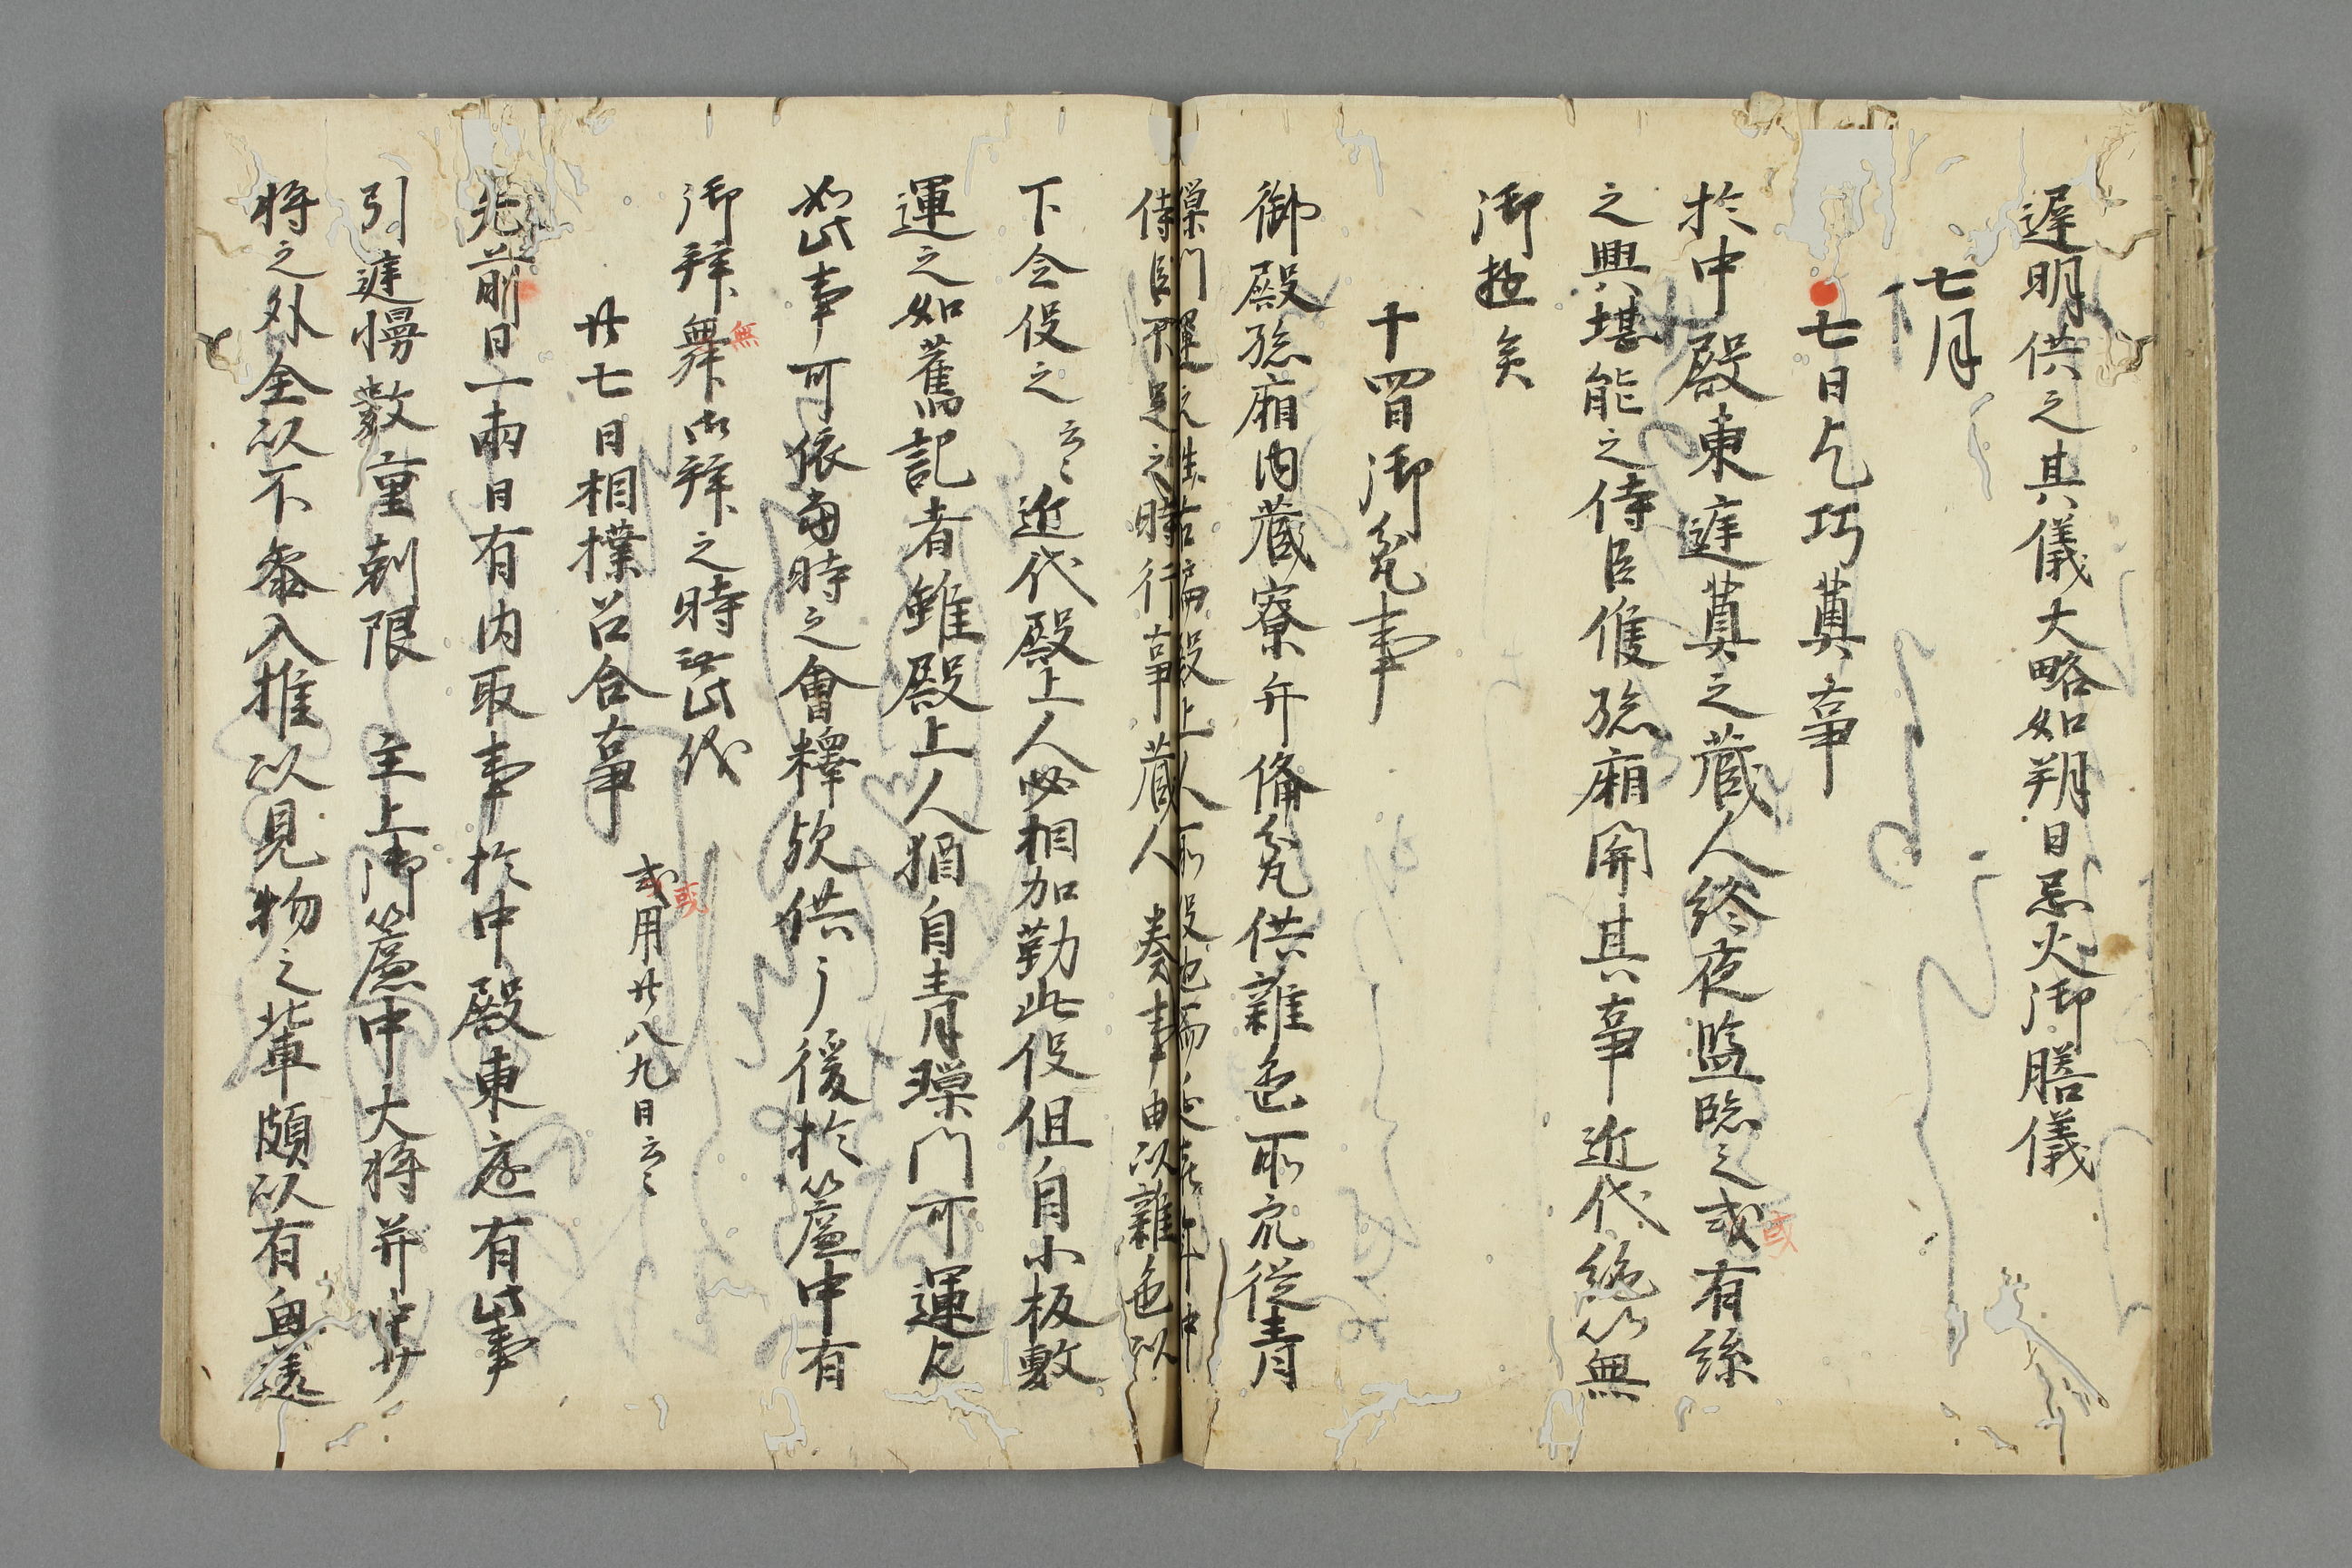 遅明供之其儀大略如朔日忌火御膳儀
七月
七日乞巧奠事
於中殿東庭奠之蔵人終夜監臨之或有絲
或
之興堪能之侍臣候孫廂開其事近代絶以無
御遊矣
十四日御瓫事
御殿孫廂内蔵寮弁備瓫供雑色所衆従青
璅門運之
殿上人所役也
侍臣不足之時行事蔵人奏事由以雑色以
下令役之云々近代殿上人必相加勤此役但自小板敷
運之如舊記者雖殿上人猶自青璅門可運也
如此事可依當時之會釋歟供了後於簾中有
御拝舞御拝之時
無
廿七日相撲召合事
或用廿八九日云々
或
先前日一両日有内取事於中殿東庭有此事
引庭慢敷重剋限 主上御簾中大将并中少
将之外全以不参入推以見物之輩頗以有